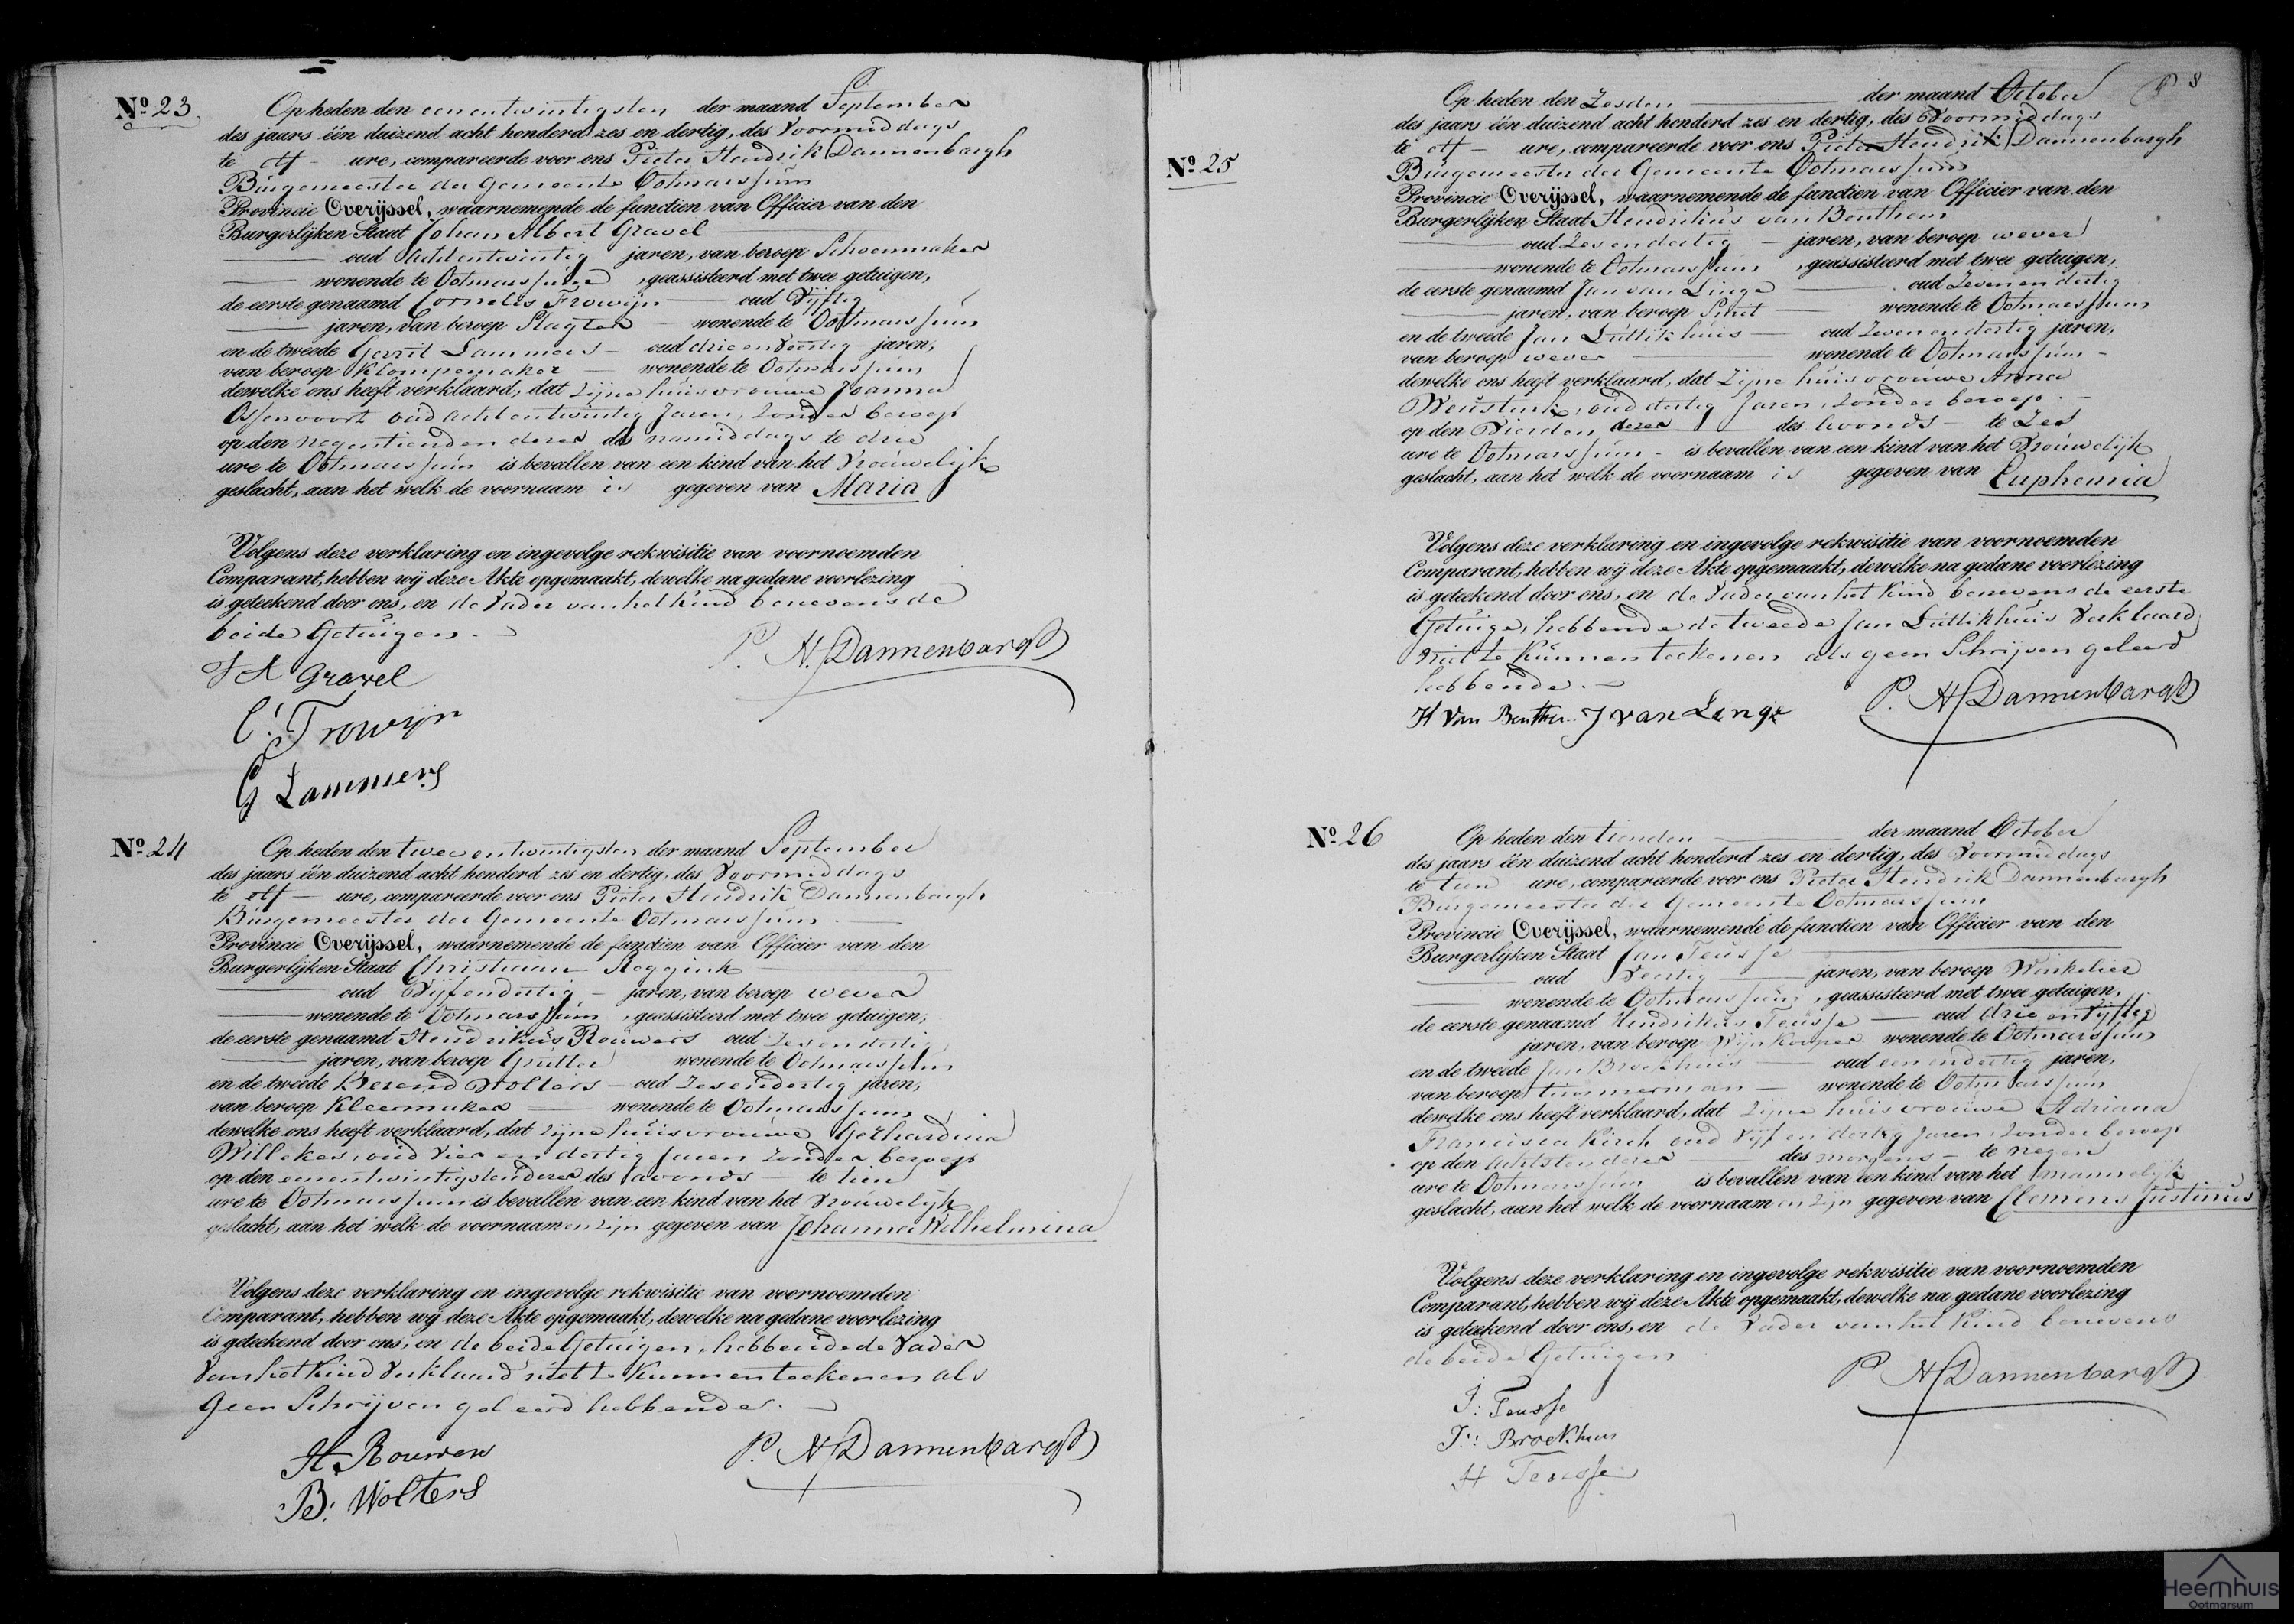 Nº 23.
Op heden den eenentwintigsten der maand September
des jaars één duizend acht honderd zes en dertig, des Voormiddags
te elf - ure, compareerde voor ons Pieter Hendrik Dannenbargh
Burgemeester der Gemeente Ootmarssum
Provincie Overijssel, waarnemende de functien van Officier van den
Burgerlijken Staat Johan Albert Gravel
oud Achtentwintig jaren, van beroep Schoenmaker
wonende te Ootmarssum, geassisteerd met twee getuigen,
de eerste genaamd Cornelis Trowijn oud Vijftig
jaren, van beroep Slagter wonende te Ootmarssum
en de tweede Gerrit Lammers oud drieenveertig jaren,
van beroep Klompemaker wonende te Ootmarssum
dewelke ons heeft verklaard, dat zijne huisvrouwe Joanna
Ossenvoort oud achtentwintig Jaren, zonder beroep
op den negentienden dezer des namiddags te drie
ure te Ootmarssum is bevallen van een kind van het Vrouwelijk
geslacht, aan het welk de voornaam is gegeven van Maria
Volgens deze verklaring en ingevolge rekwisitie van voornoemden
Comparant, hebben wij deze Akte opgemaakt, dewelke na gedane voorlezing
is geteekend door ons, en de Vader van het Kind benevens de
beide Getuigen.
J A Gravel
P. H. Dannenbargh
C. Trowijn
G Lammers
Nº 24
Op heden den tweeentwintigsten der maand September
des jaars één duizend acht honderd zes en dertig, des Voormiddags
te elf - ure, compareerde voor ons Pieter Hendrik Dannenbargh
Burgemeester der Gemeente Ootmarssum
Provincie Overijssel, waarnemende de functien van Officier van den
Burgerlijken Staat Christiaan Reggink
oud Vijfendertig - jaren, van beroep wever
wonende te Ootmarssum, geassisteerd met twee getuigen,
de eerste genaamd Hendrikus Rouwers oud Zesendertig
jaren, van beroep Grutter wonende te Ootmarssum
en de tweede Berend Wolters - oud Zesendertig jaren,
van beroep Kleermaker wonende te Ootmarssum
dewelke ons heeft verklaard, dat zijne huisvrouwe Gerhardina
Willekes, oud Vier en dertig Jaren zonder beroep
op den eenentwintigsten dezer des avonds - te tien
ure te Ootmarssum is bevallen van een kind van het Vrouwelijk
geslacht, aan het welk de voornaamen zijn gegeven van Johanna Wilhelmina
Volgens deze verklaring en ingevolge rekwisitie van voornoemden
Comparant, hebben wij deze Akte opgemaakt, dewelke na gedane voorlezing
is geteekend door ons, en de beide Getuigen, hebbende de Vader
van het Kind Verklaard niet te Kunnen teekenen als
Geen Schrijven geleerd hebbende.
H. Rouwers
P. H Dannenbargh
B. Wolters
8
Nº 25
Op heden den Zesden der maand October
des jaars één duizend acht honderd zes en dertig, des Voormiddags
te elf - ure, compareerde voor ons Pieter Hendrik Dannenbargh
Burgemeester der Gemeente Ootmarssum
Provincie Overijssel, waarnemende de functien van Officier van den
Burgerlijken Staat Hendrikus van Benthem
oud Zesendertig - jaren, van beroep wever
wonende te Ootmarssum, geassisteerd met twee getuigen,
de eerste genaamd Jan van Linge oud Zevenendertig
jaren, van beroep Smit wonende te Ootmarssum
en de tweede Jan Luttikhuis oud Zevenendertig jaren,
van beroep wever wonende te Ootmarssum -
dewelke ons heeft verklaard, dat zijne huisvrouwe Anna
oud dertig Jaren, zonder beroep. -
op den Vierden dezer des Avonds - te Zes
ure te Ootmarssum - is bevallen van een kind van het Vrouwelijk
geslacht, aan het welk de voornaam is gegeven van Euphemia
Volgens deze verklaring en ingevolge rekwisitie van voornoemden
Comparant, hebben wij deze Akte opgemaakt, dewelke na gedane voorlezing
is geteekend door ons, en de Vader van het Kind benevens de eerste
Getuige, hebbende de tweede Jan Luttikhuis Verklaard
niet te Kunnen teekenen als geen Schrijven geleerd
hebbende. -
H van Benthem J van Linge
P. H Dannenbargh
Nº 26
Op heden den tienden der maand October
des jaars één duizend acht honderd zes en dertig, des Voormiddags
te tien ure, compareerde voor ons Pieter Hendrik Dannenbargh
Burgemeester der Gemeente Ootmarssum
Provincie Overijssel, waarnemende de functien van Officier van den
Burgerlijken Staat Jan Teusse
oud Veertig jaren, van beroep Winkelier
wonende te Ootmarssum, geassisteerd met twee getuigen,
de eerste genaamd Hendrikus Teusse oud drie en vijftig
jaren, van beroep Wijn Kooper wonende te Ootmarssum
en de tweede Jan Broekhuis oud een endertig jaren,
van beroep timmerman - wonende te Ootmarssum
dewelke ons heeft verklaard, dat zijne huisvrouwe Adriana
Francisca Kirch oud Vijf en dertig Jaren, zonder beroep
op den Achtsten dezer des morgens - te negen
ure te Ootmarssum is bevallen van een kind van het mannelijk
geslacht, aan het welk de voornaamen zijn gegeven van Clemens Justinus
Volgens deze verklaring en ingevolge rekwisitie van voornoemden
Comparant, hebben wij deze Akte opgemaakt, dewelke na gedane voorlezing
is geteekend door ons, en de Vader van het Kind benevens
de beide Getuigen
P. H Dannenbargh
J: Teusse
J:: Broekhuis
H Teusse
Heemhuis
Ootmarsum